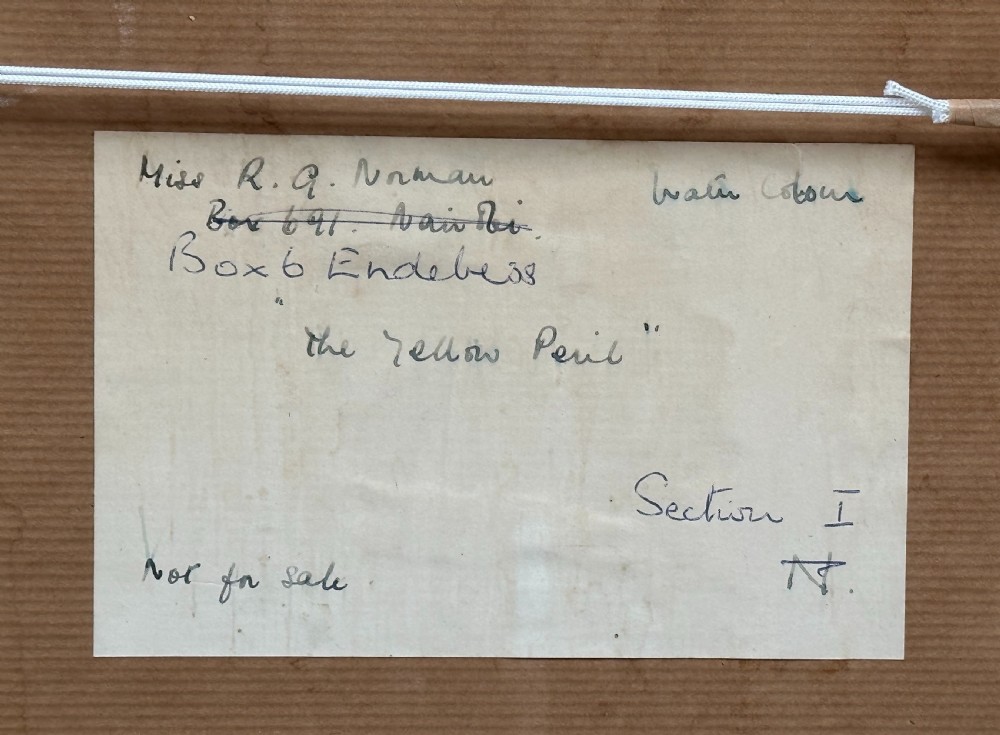 Miss R. G. Norman
Water Colour
Box 691. Nairobi.
Box 6 Endebess
"The Yellow Peril"
Section I
N.
Not for sale